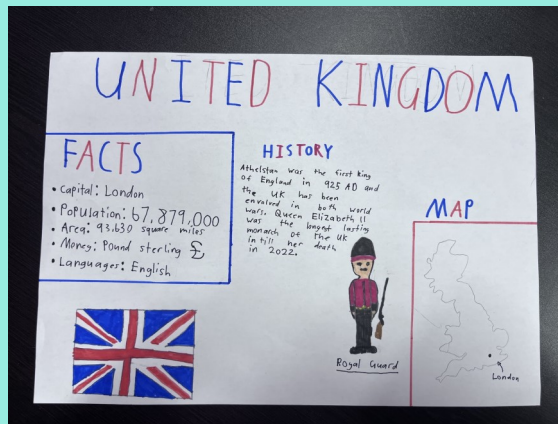 UNITED KINGDOM
FACTS
• Capital: London
• Population: 67,879,000
• Area: 93,630 square miles
• Money: Pound sterling £
• Languages: English
HISTORY
Athelstan was the first king
of England in 925 AD and
the UK has been
envolved in both world
wars. Queen Elizabeth II
was the longest lasting
monarch of the UK
in till her death
in 2022.
Royal Guard
MAP
London